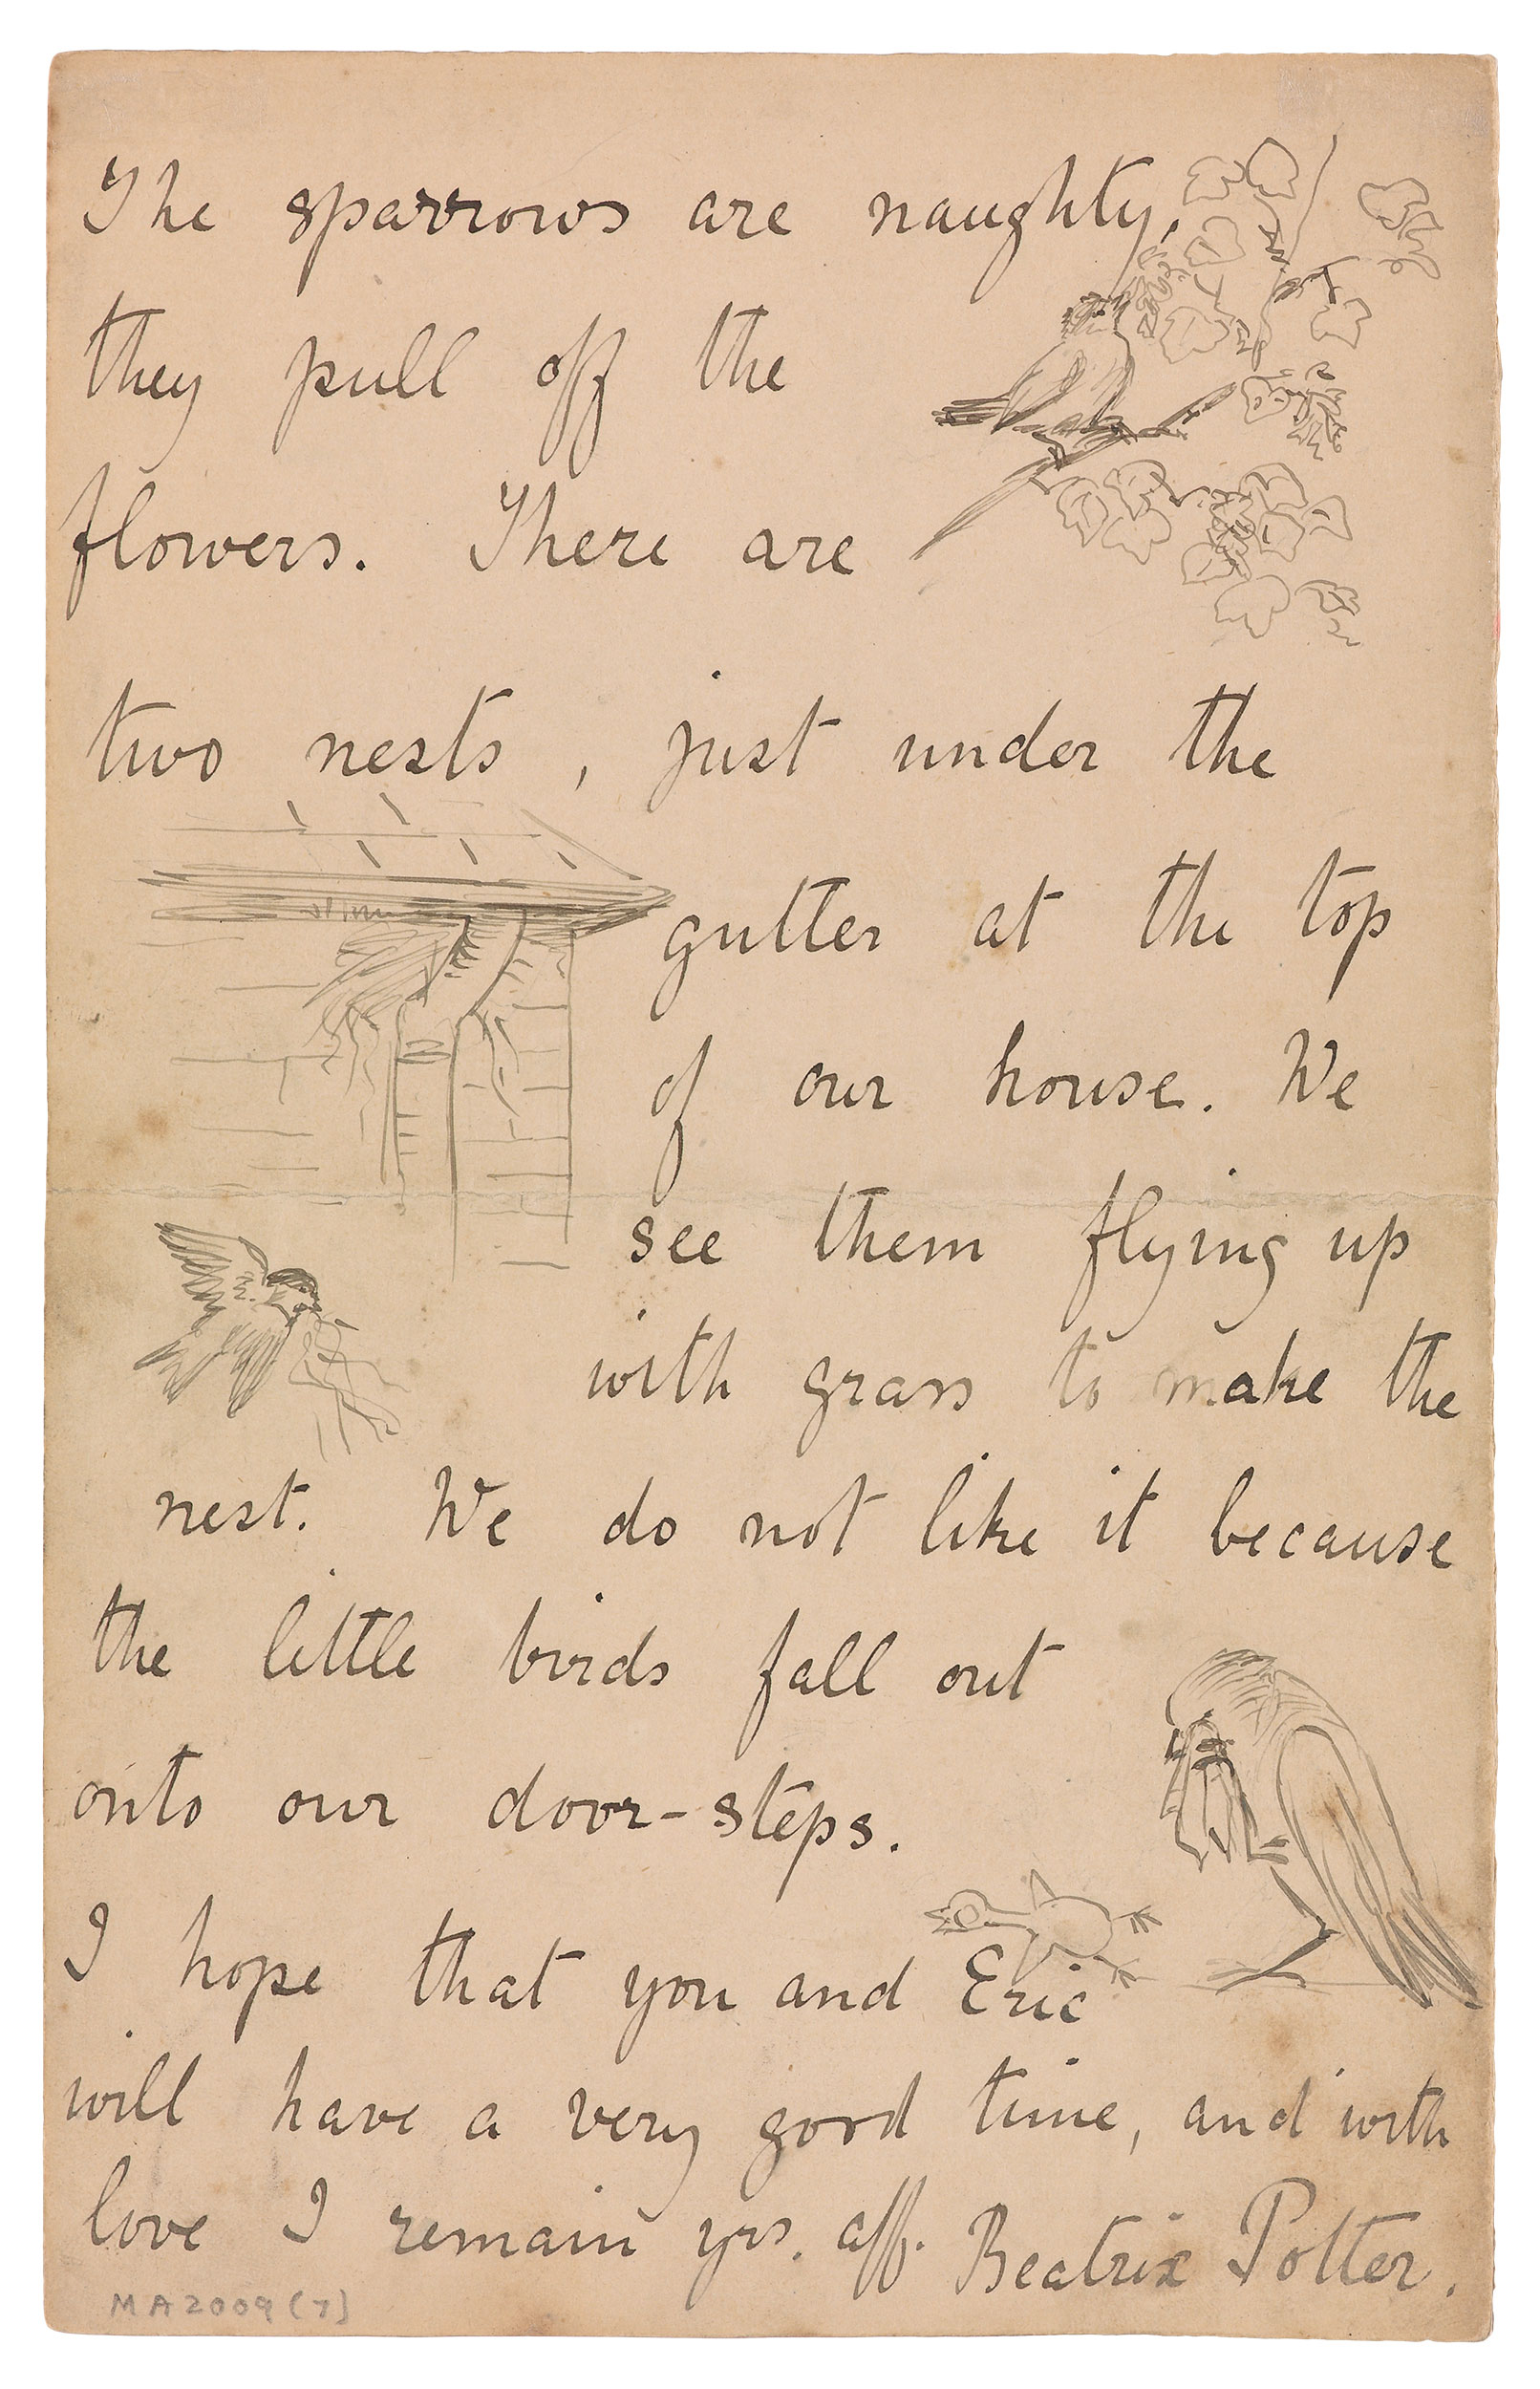 The sparrows are naughty,
they pull off the
flowers. There are
two nests, just under the
gutter at the top
of our house. We
see them flying up
with grass to make the
nest. We do not like it because
the little birds fall out
onto our door-steps.
I hope that you and Eric
will have a very good time, and with
love I remain yrs. aff. Beatrix Potter.
MA2009(7)